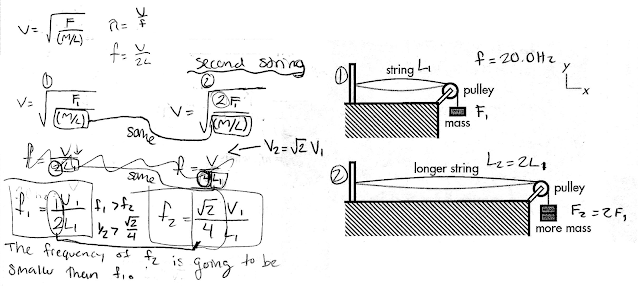 V = √F/(M/L)
λ = V/f
f = V/2L
second string
①
V = √F₁/(M/L)
②
V = √②F₁/(M/L)
same
V₂ = √2 V₁
f = V/②L₁
same
f = V/④L₁
f₁ = 1/2 V₁/L₁
f₁ > f₂
1/2 > √2/4
f₂ = √2/4 V₁/L₁
The frequency of f₂ is going to be
smaller than f₁.
①
string L₁
f = 20.0Hz
y
x
pulley
F₁
mass
②
longer string
L₂ = 2L₁
pulley
F₂ = 2F₁
more mass